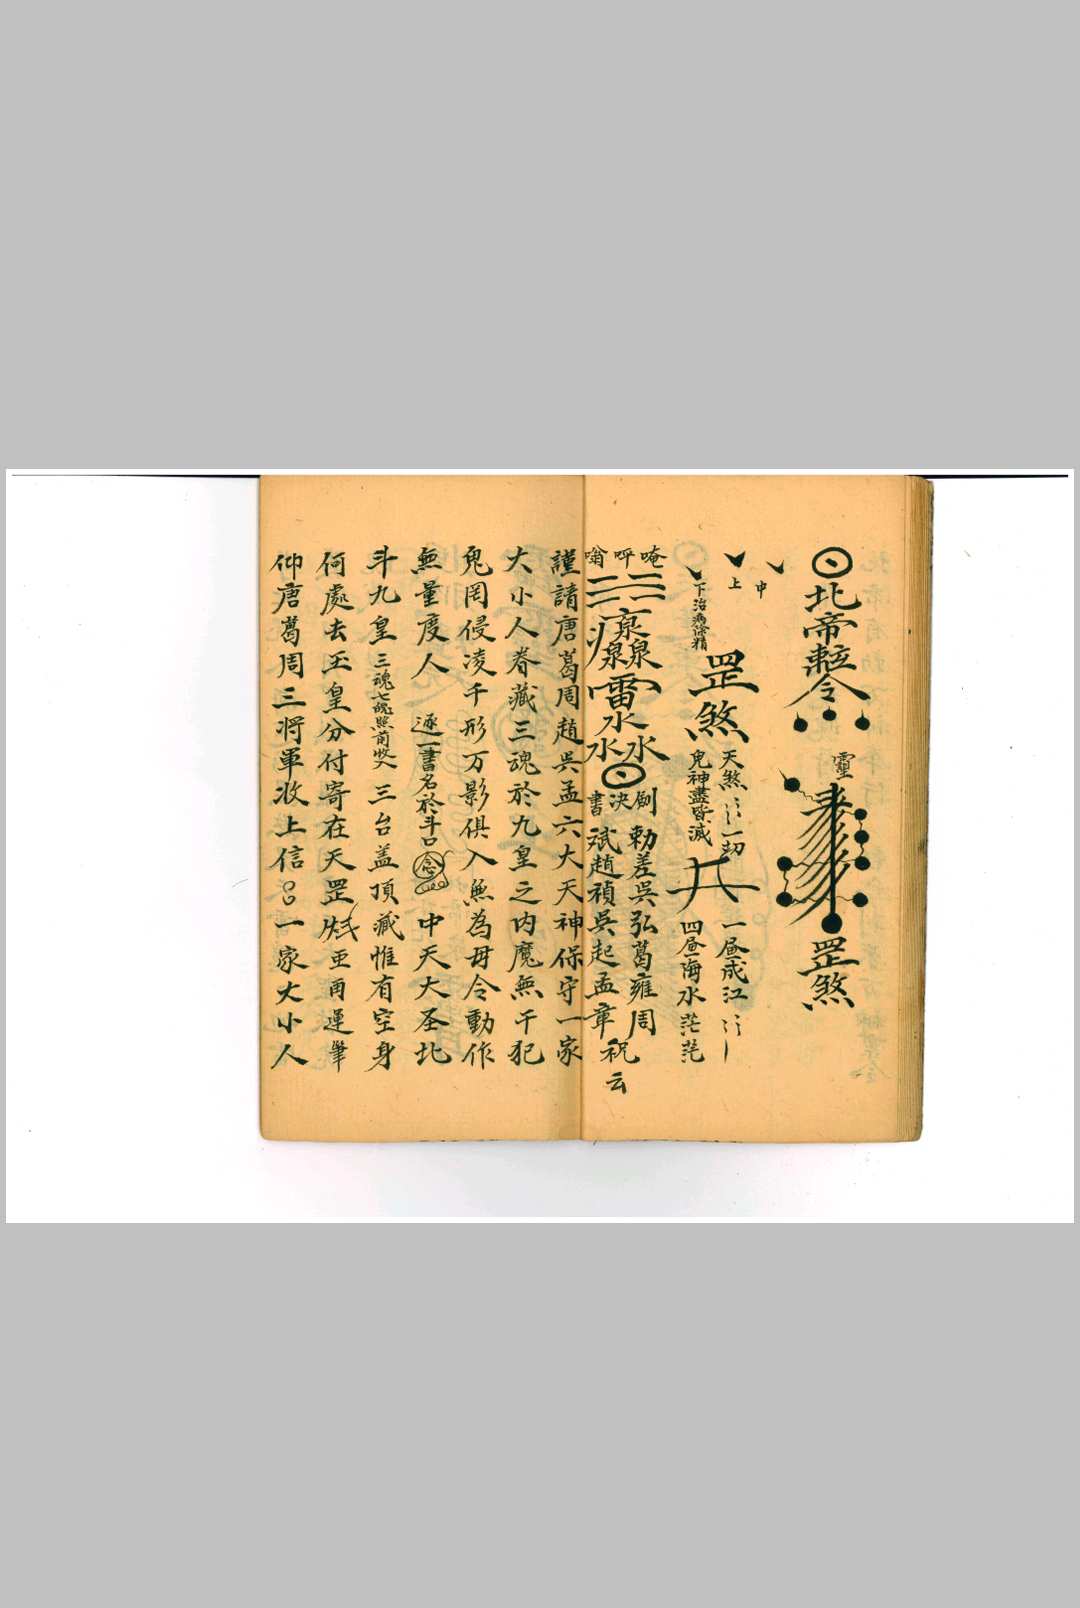 北帝敕令
靈
罡煞
中
上
下治病除精
罡煞
天煞⺀⺀一切
鬼神盡皆滅
一昼成江⺀⺀丨
四昼海水茫茫
唵
呼
嗡
雷
水
水水
勅差吳弘葛雍周
斌趙禎吳起孟章
祝云
謹請唐葛周趙吳孟六大天神保守一家
大小人眷藏三魂於九皇之内魔無干犯
鬼罔侵凌千形万影俱入無為毋令動作
無量度人 逐一書名於斗口 念 中天大圣北
斗九皇 三魂七魄照前收入 三台盖頂藏惟有空身
何處去玉皇分付寄在天罡 亚再運筆
仰唐葛周三將軍收上信吕一家大小人